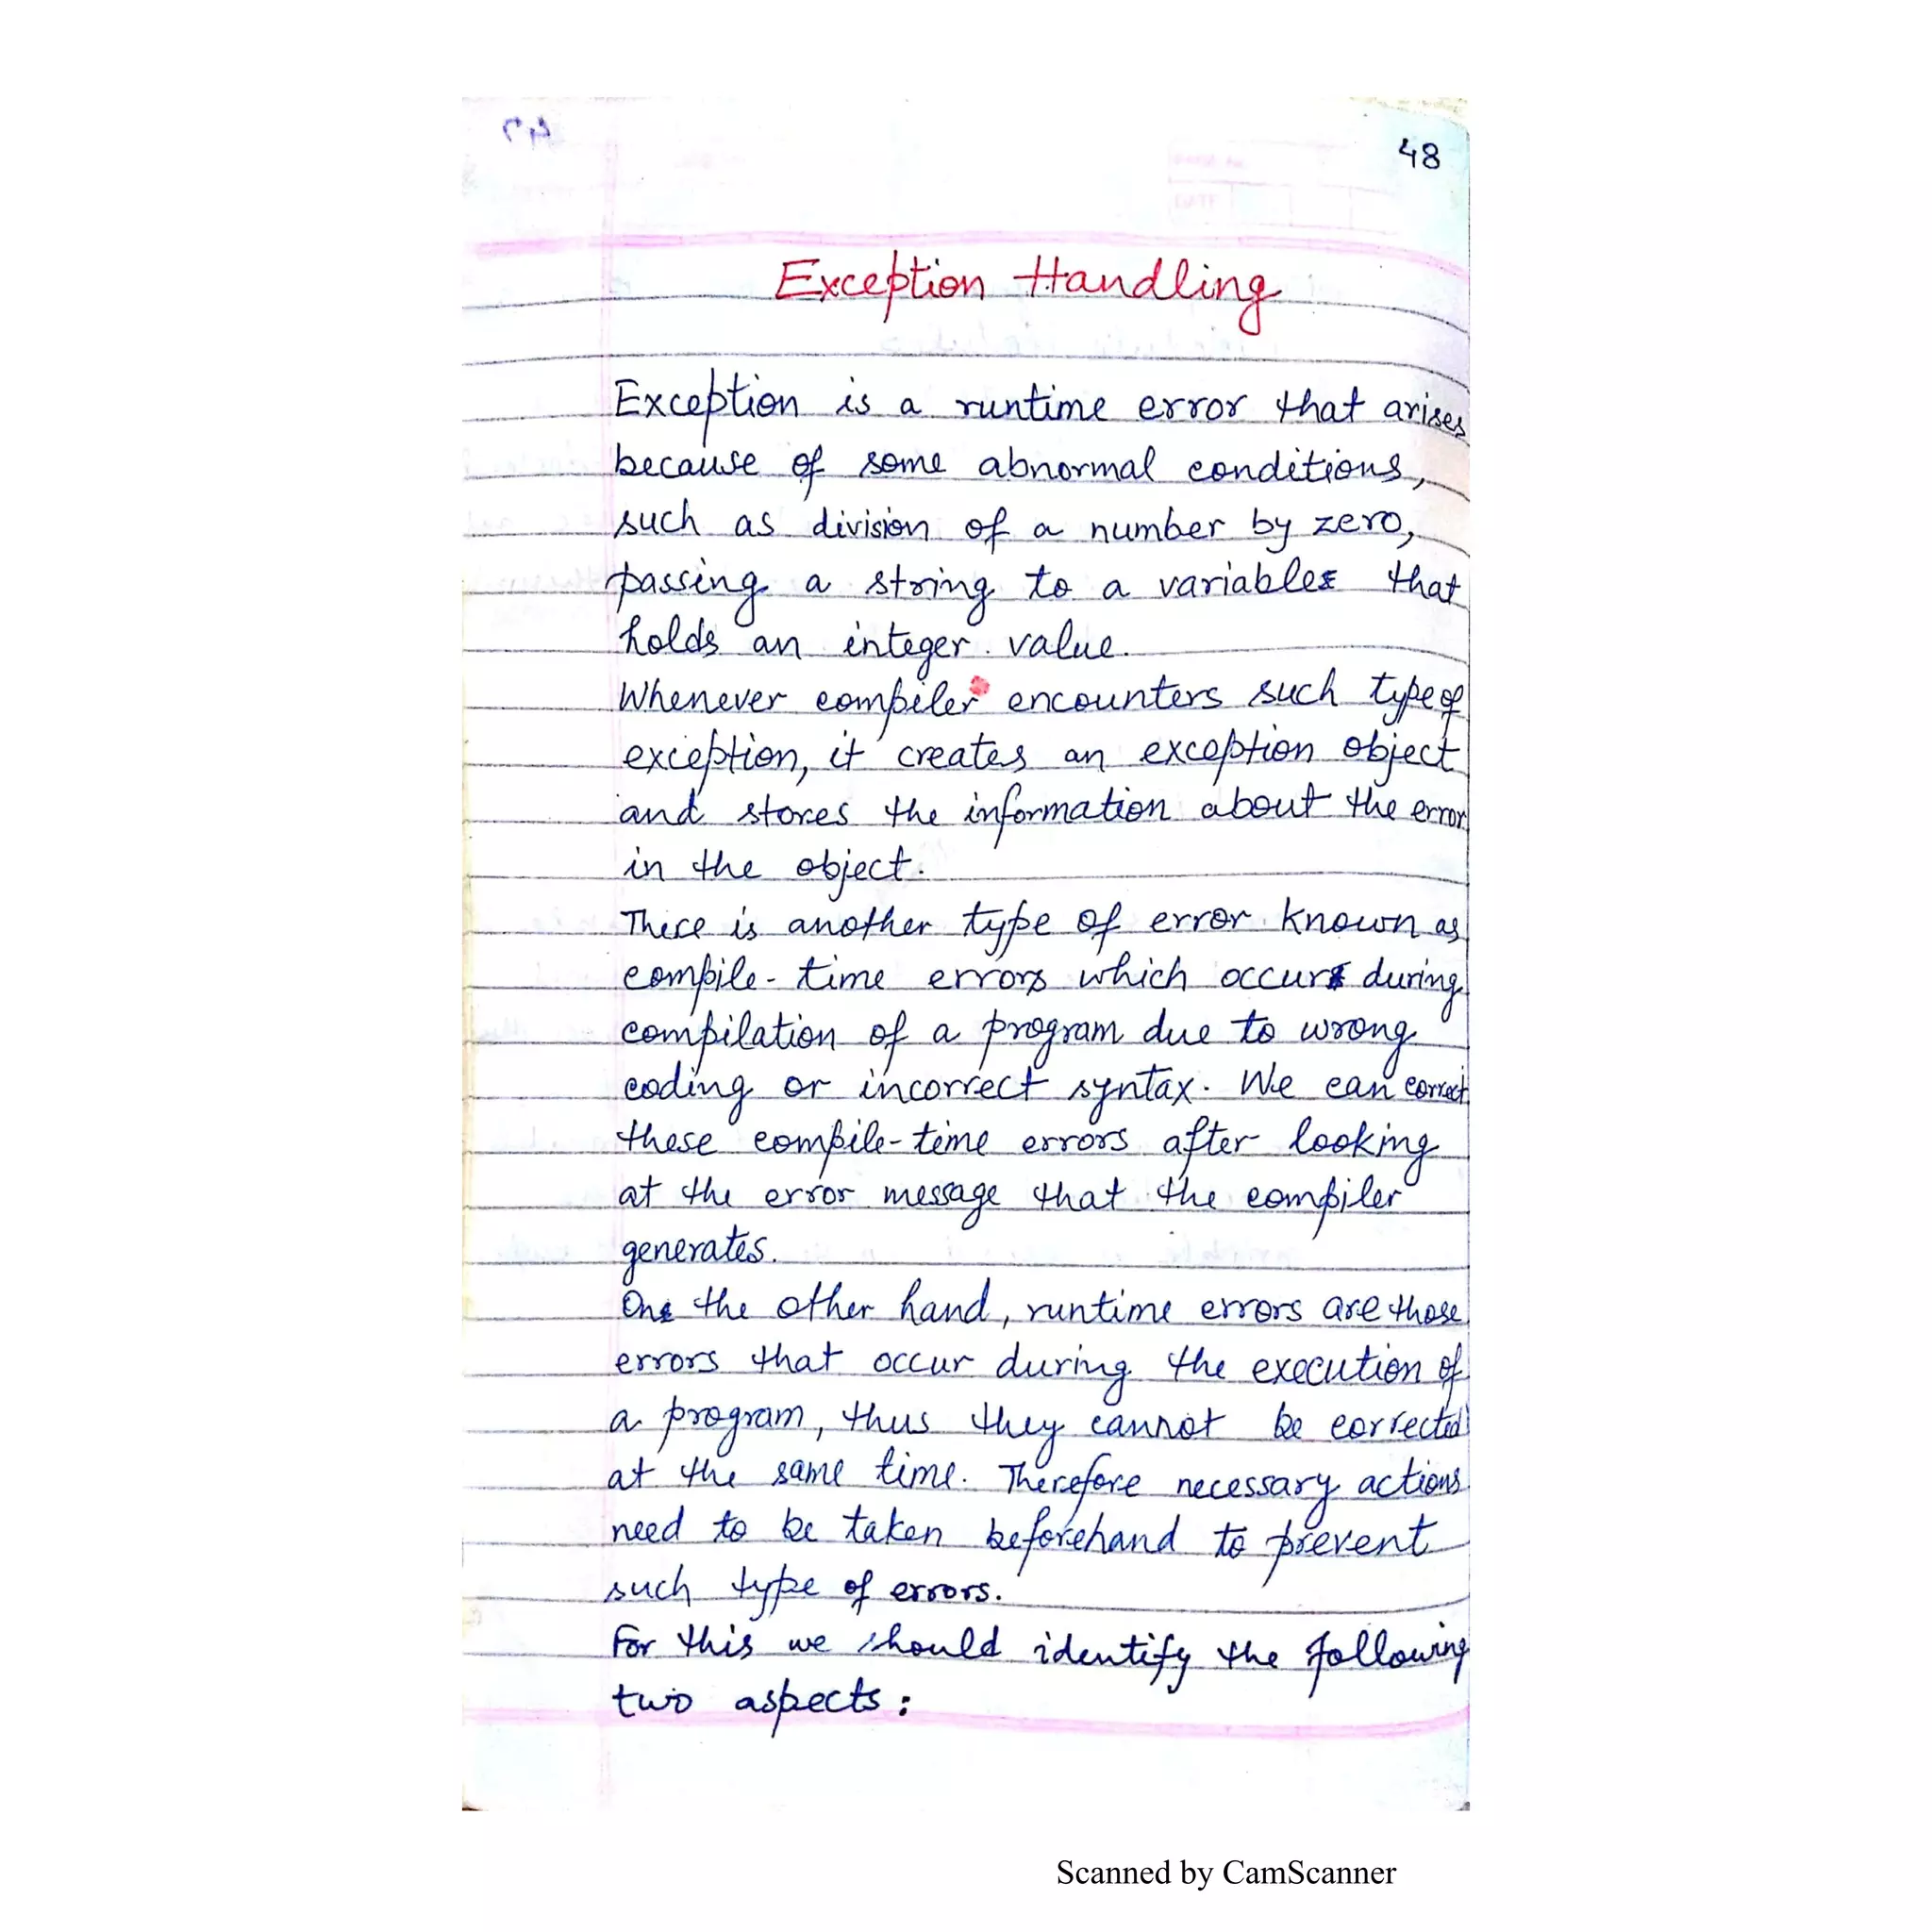 48
Exception Handling
Exception is a runtime error that arises
because of some abnormal conditions,
such as division of a number by zero,
passing a string to a variable that
holds an integer value.
Whenever compiler encounters such type of
exception, it creates an exception object
and stores the information about the error
in the object.
There is another type of error known as
compile-time errors which occur during
compilation of a program due to wrong
coding or incorrect syntax. We can correct
these compile-time errors after looking
at the error message that the compiler
generates.
On the other hand, runtime errors are those
errors that occur during the execution of
a program, thus they cannot be corrected
at the same time. Therefore necessary actions
need to be taken beforehand to prevent
such type of errors.
For this we should identify the following
two aspects:
Scanned by CamScanner